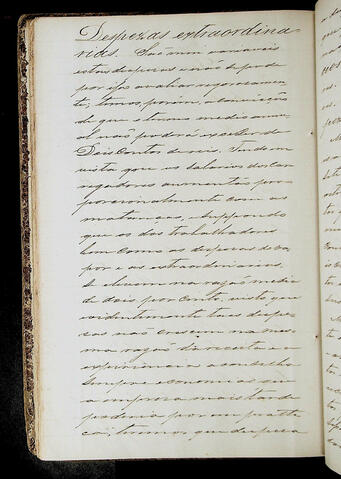 Despezas extraordina
rias. São mui variaveis
estas despezas e não se pode
por isso avaliar rigorosamen
te; temos, porém, a convicção
de que o termo medio annu
al não poderá exceder de
Dois Contos de reis. Tendo em
vista que os salarios dos Car
regadores aumentão pro
porcionalmente com as
matanças, e suppondo
que os dos trabalhadores
bem como as despezas do va
por e as extraordinarias,
se elevem na razão media
de dois por cento, visto que
evidentemente taes despe
zas não crescem na mes
ma razão da receita e a
experiencia aconselha
sempre economias que
a empreza mais tarde
poderia por em prati
ca, teremos que a despeza